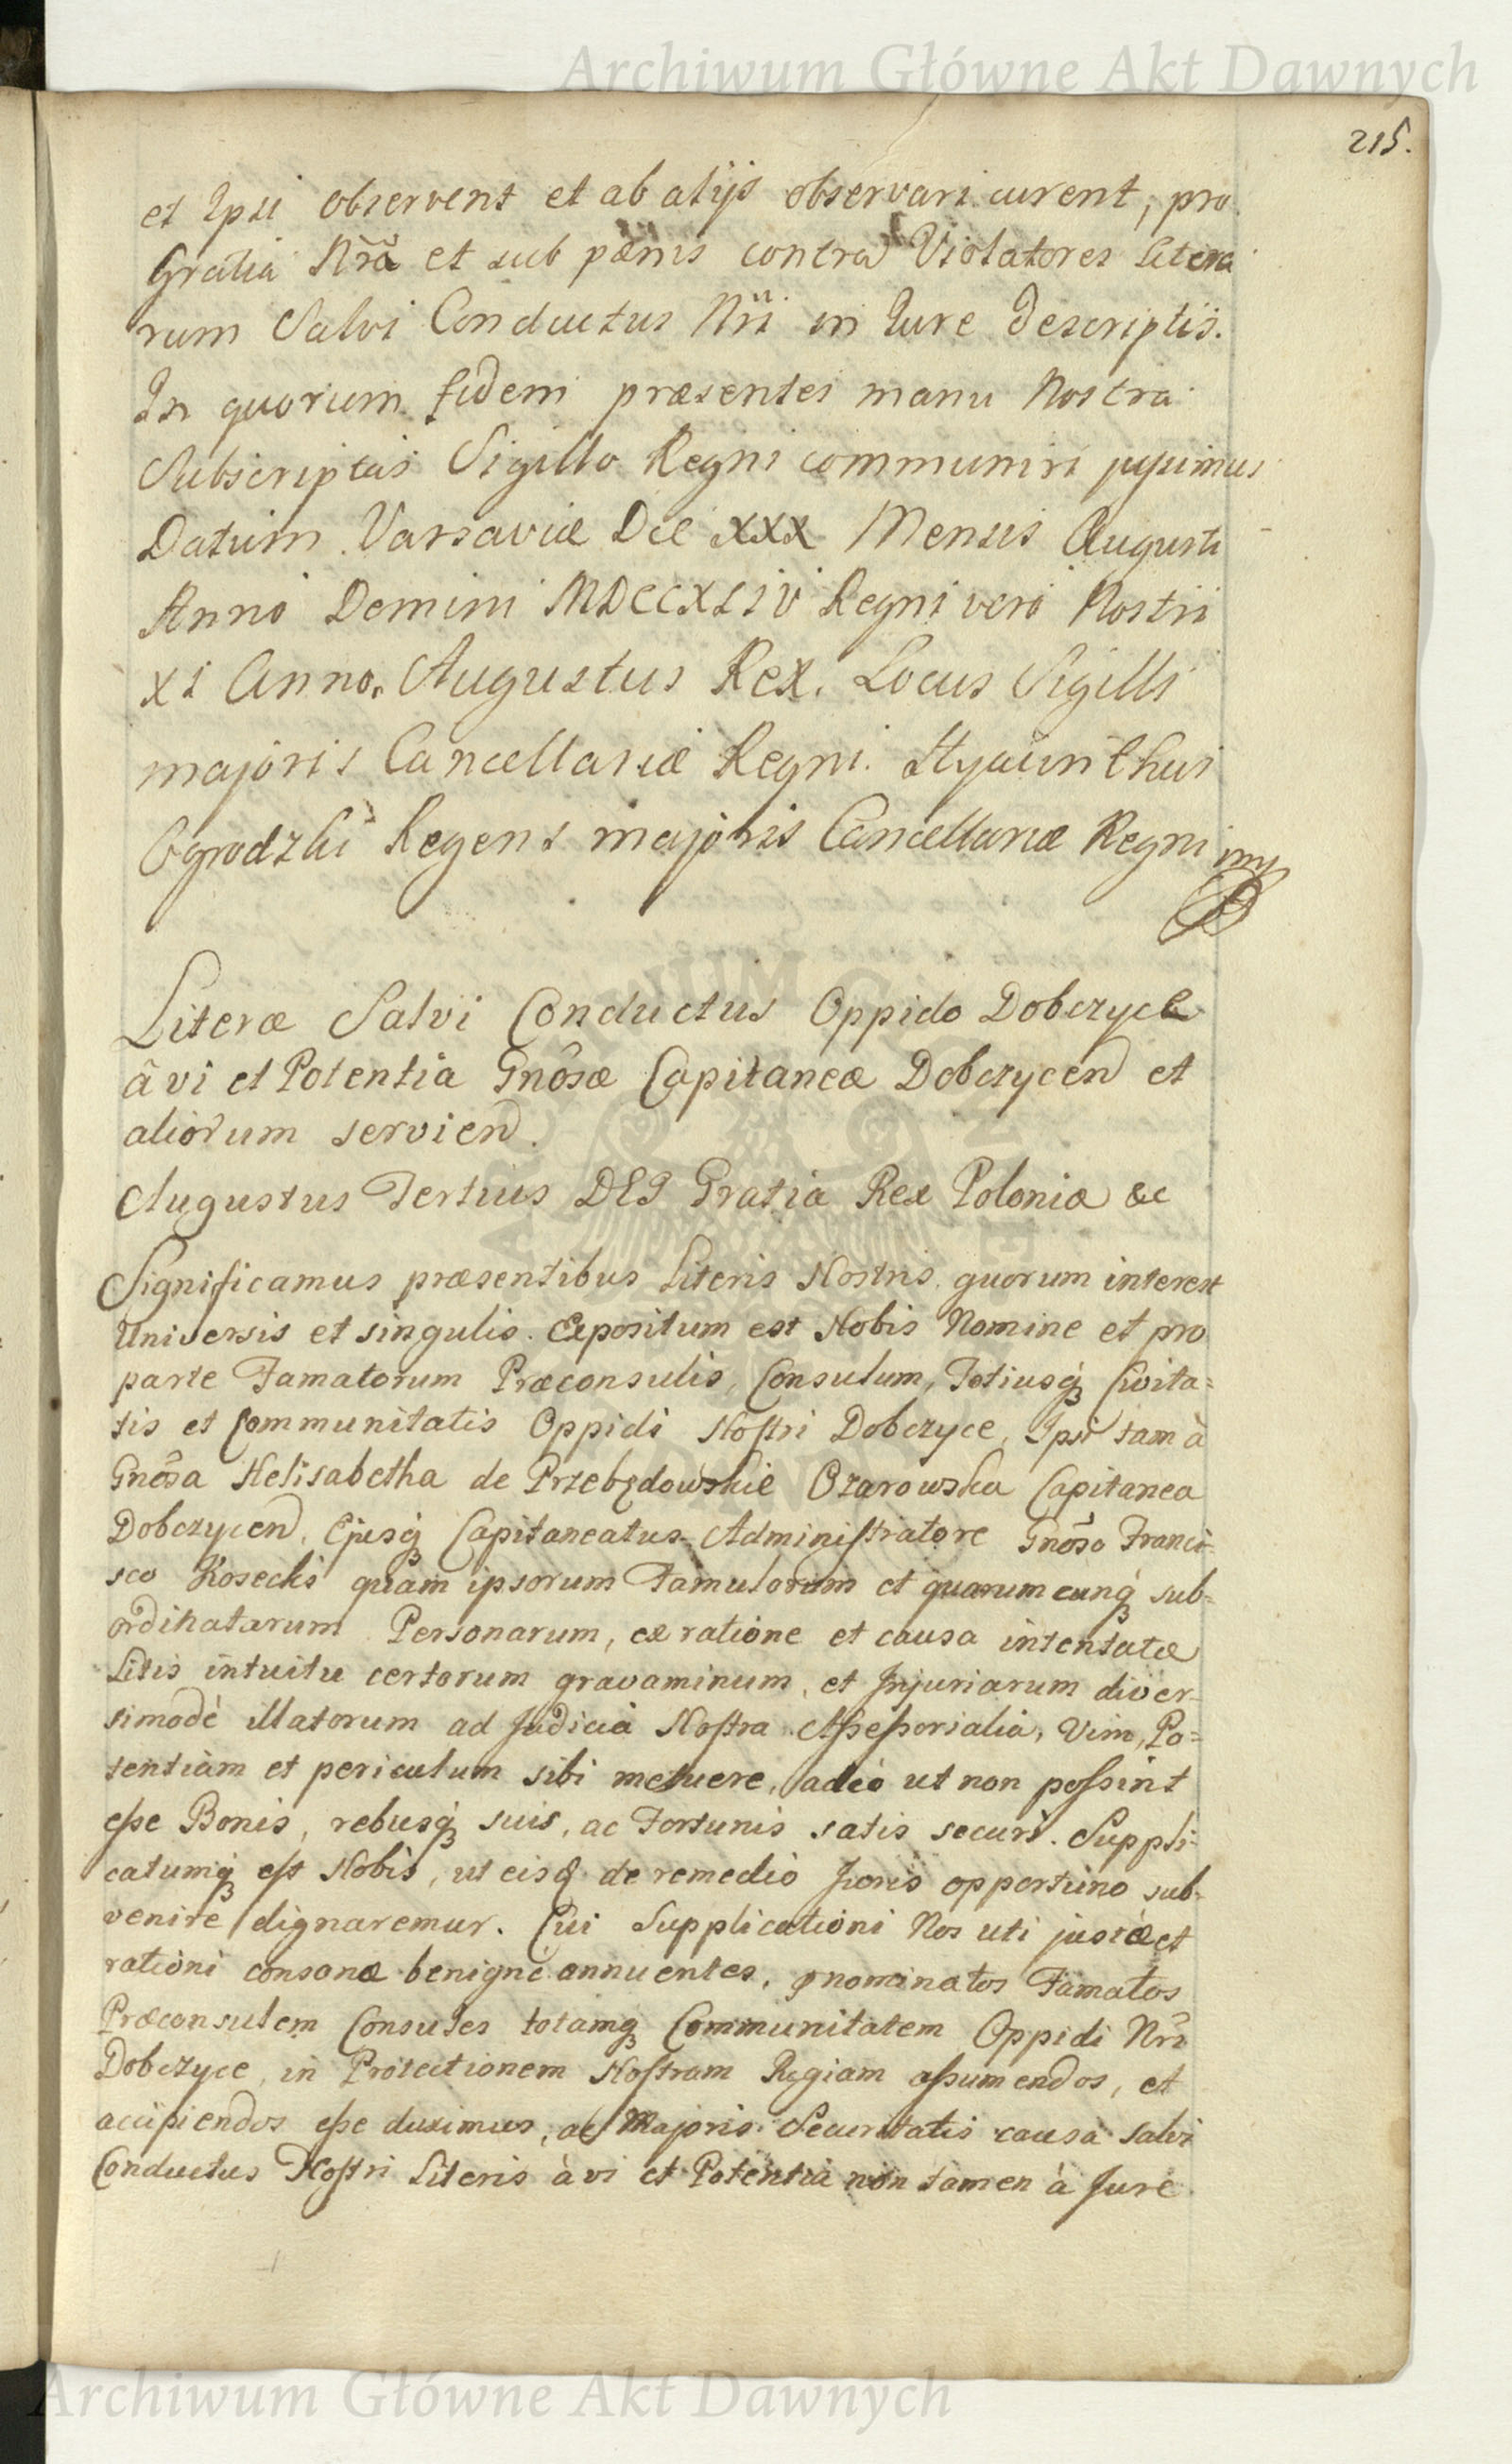 Archiwum Główne Akt Dawnych
215.
et Ipsi observent et ab alijs observari curent, pro
Gratia Nrã et sub pænis contra Violatores litera
rum Salvi Conductus Nri in Iure descriptis.
In quorum fidem præsentes manu Nostra
Subscriptas Sigillo Regni communiri jussimus
Datum Varsaviæ Die XXX Mensis Augusti
Anno Domini MDCCXLIV Regni vero Nostri
XI Anno. Augustus Rex. Locus Sigilli
majoris Cancellariæ Regni. Hyacinthus
Ogrodzki Regens majoris Cancellariæ Regni mp
Literæ Salvi Conductus Oppido Dobczyce
â vi et Potentia Gnôsæ Capitaneæ Dobczycen et
aliorum servien.
Augustus Tertius DEI Gratia Rex Poloniæ &c
Significamus præsentibus Literis Nostris quorum interest
Universis et singulis. Expositum est Nobis Nomine et pro
parte Famatorum Præconsulis, Consulum, Totiusq3 Civita=
tis et Communitatis Oppidi Nostri Dobczyce, Ipsi tam à
Gnôsa Helisabetha de Przebędowskie Ożarowska Capitanea
Dobczycen, Ejusq3 Capitaneatus Administratore Gnôso Franci-
sco Kosecki quàm ipsorum Famulorum et quarumcunq3 sub=
ordinatarum Personarum, ex ratione et causa intentatæ
Litis intuitu certorum gravaminum, et Injuriarum diver-
simodè illatorum ad Judicia Nostra Assessorialia, Vim, Po=
tentiam et periculum sibi metuere, adeò ut non possint
esse Bonis, rebusq3 suis, ac Fortunis satis securi. Suppli-
catumq3 est Nobis, ut eisd de remedio Juris opportuno sub-
venire dignaremur. Cui Supplicationi Nos uti justæ et
rationi consonæ benignè annuentes, pnominatos Famatos
Præconsulem Consules totamq3 Communitatem Oppidi Nri
Dobczyce, in Protectionem Nostram Regiam assumendos, et
accipiendos esse duximus, ac Majoris Securitatis causa Salvi
Conductus Nostri Literis à vi et Potentia non tamen à Jure
Archiwum Główne Akt Dawnych